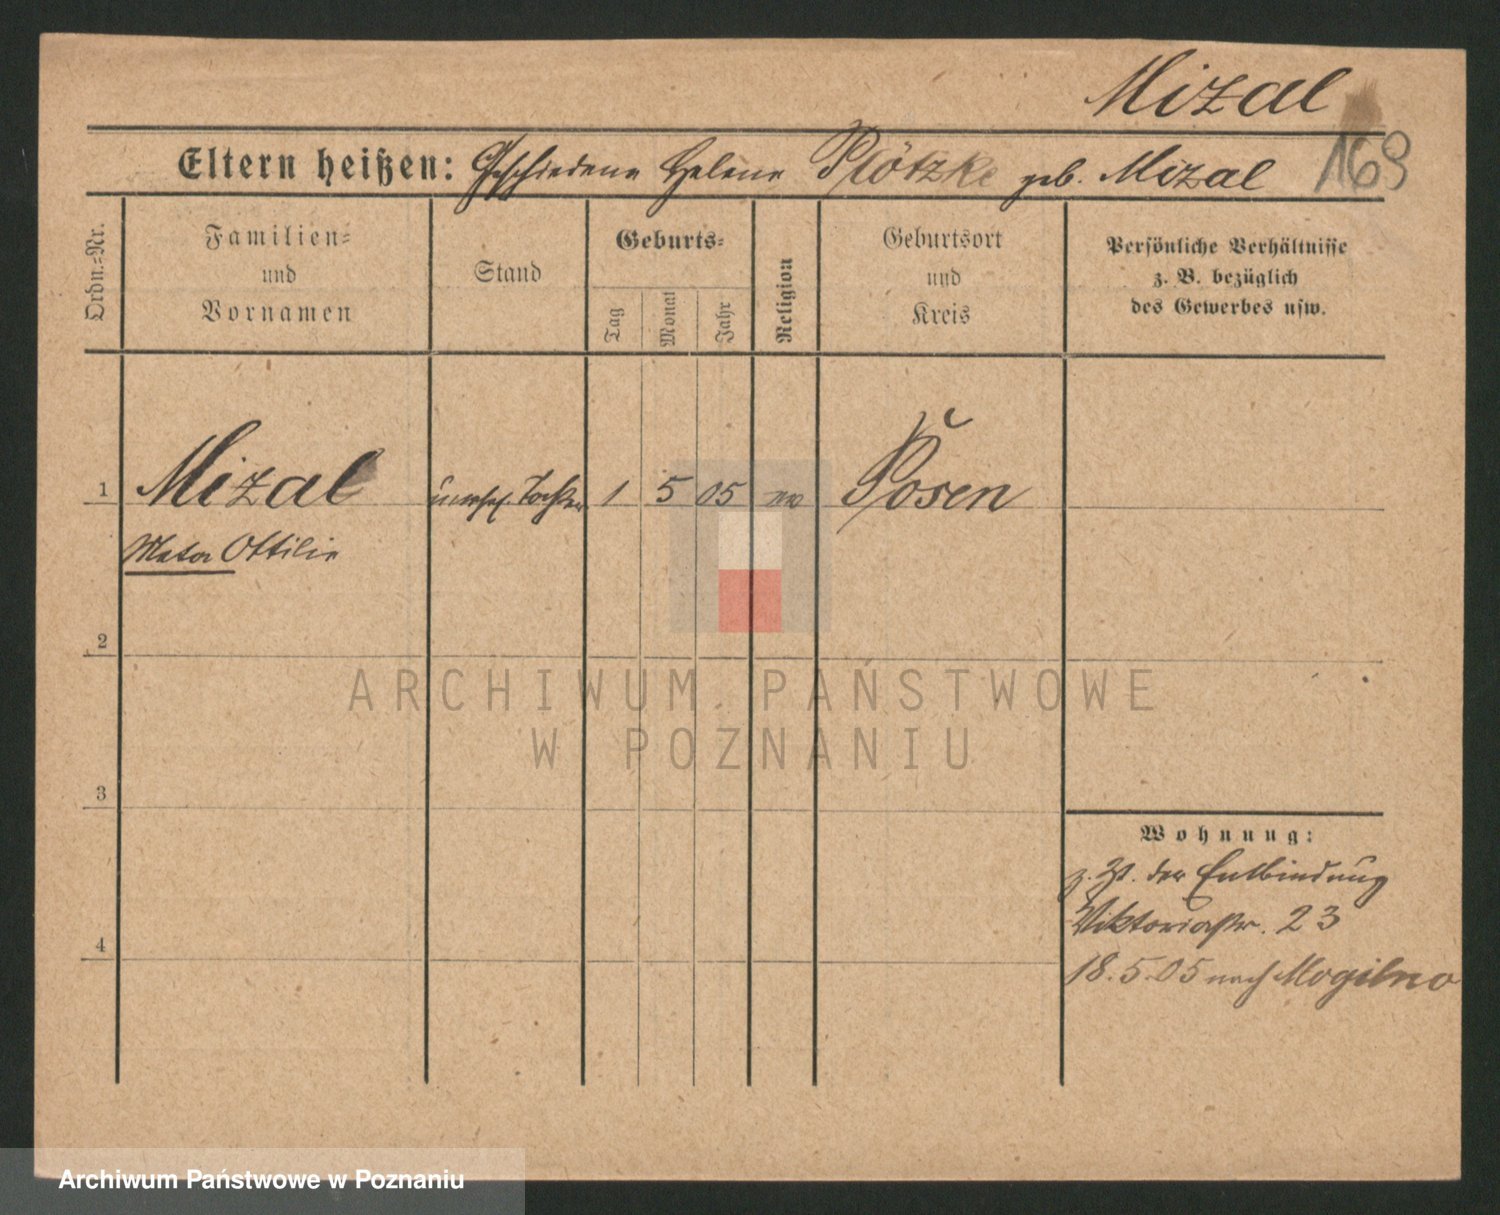 Mizal
169
Eltern heißen: Geschiedene Helene Plötzke geb. Mizal
Ordn.-Nr.
Familien-
und
Vornamen
Stand
Geburts-
Tag
Monat
Jahr
Religion
Geburtsort
und
Kreis
Persönliche Verhältnisse
z. B. bezüglich
des Gewerbes usw.
1
Mizal
unehel. Tochter
1
5
05
ev
Posen
Ottilie
2
3
4
Wohnung:
z. Zt. der Entbindung
Viktoriastr. 23
18.5.05 nach Mogilno
ARCHIWUM PAŃSTWOWE
W POZNANIU
Archiwum Państwowe w Poznaniu